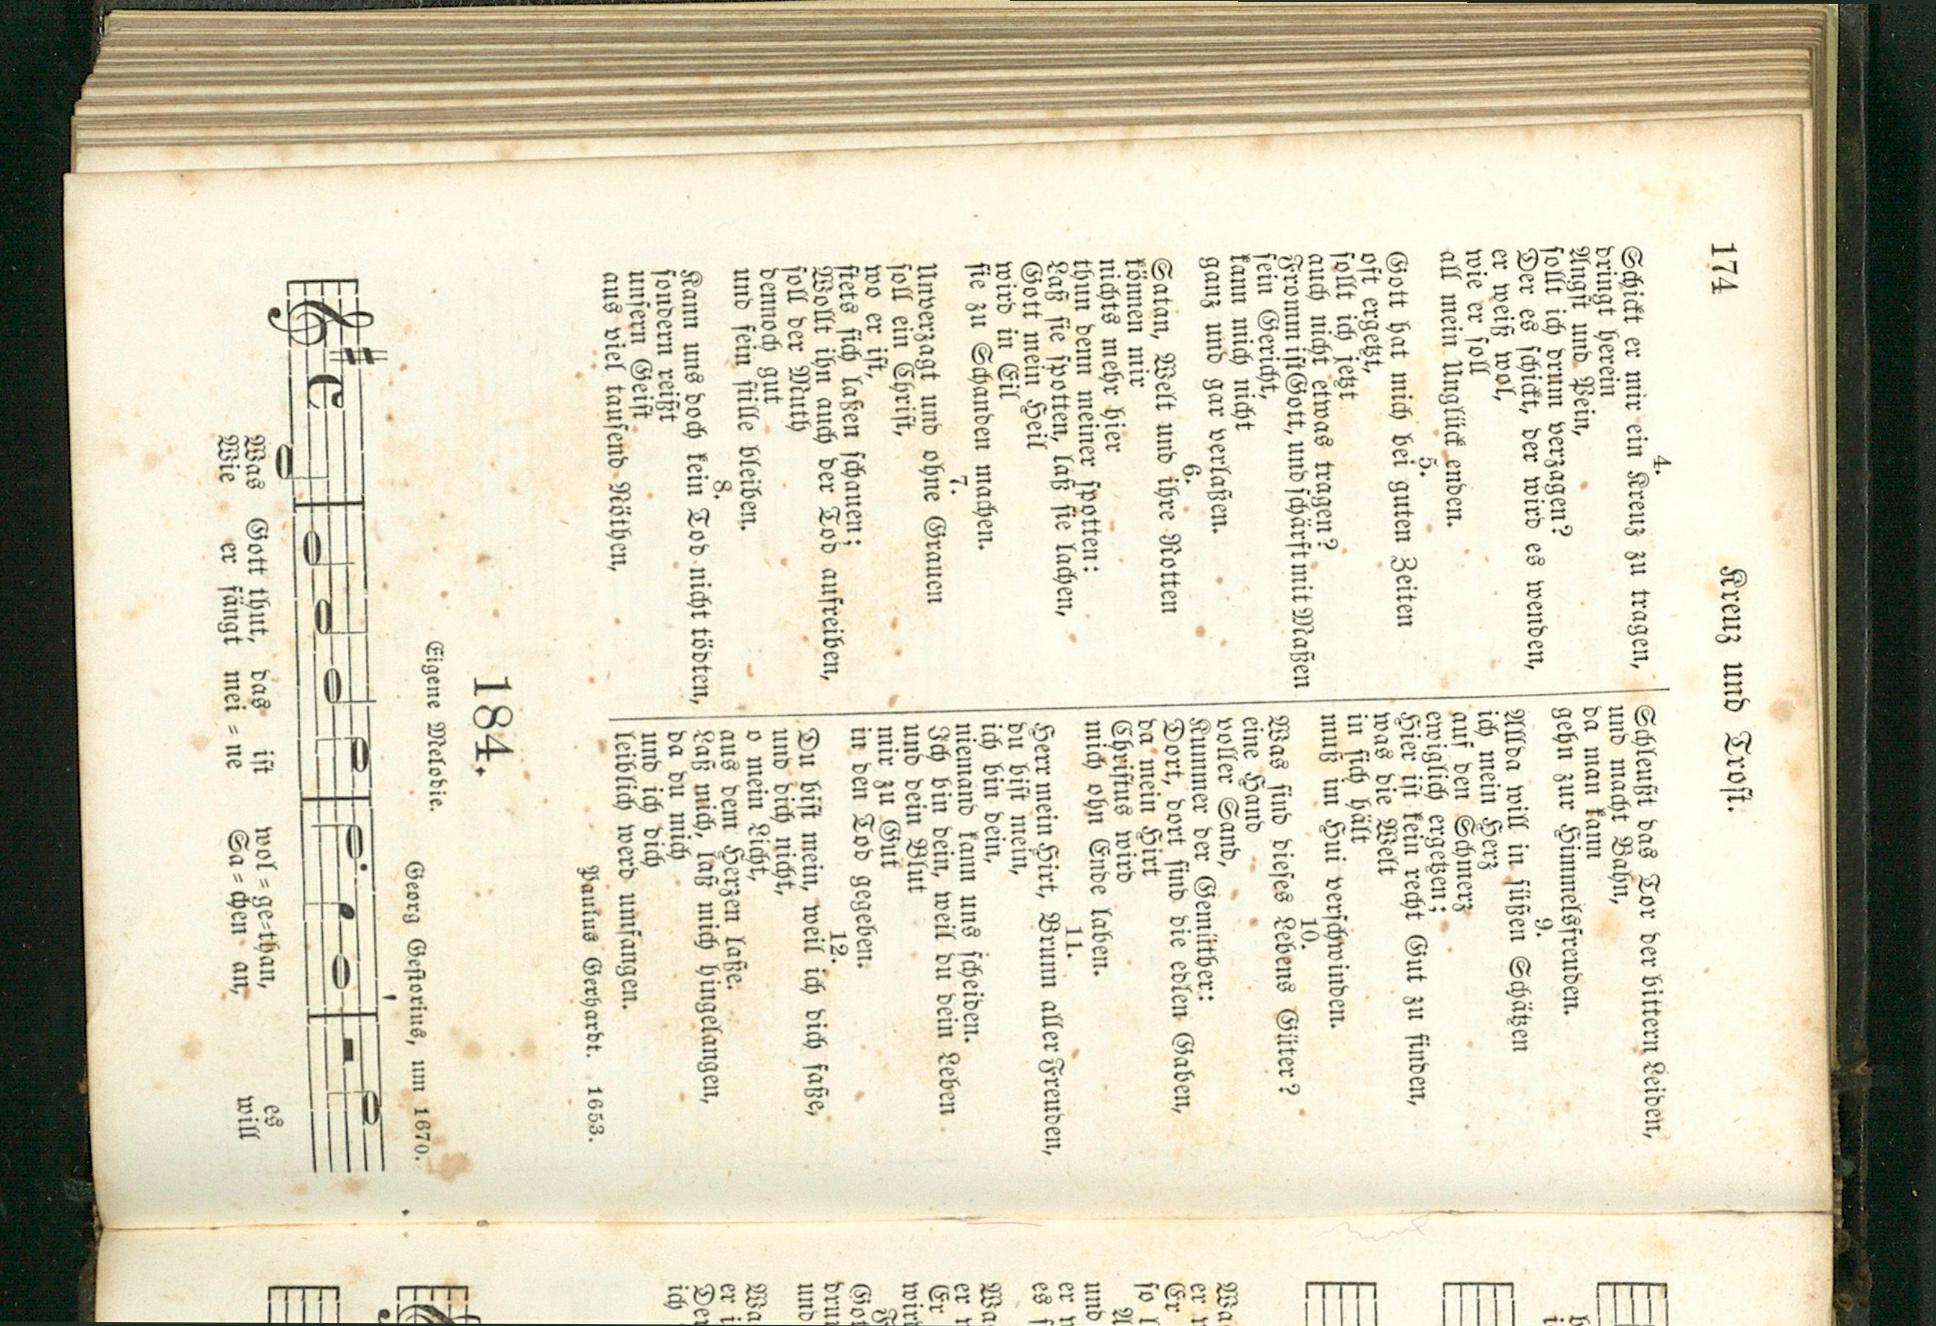 174
Kreuz und Trost.
4.
Schickt er mir ein Kreuz zu tragen,
dringt herein
Angst und Pein,
sollt ich drum verzagen?
Der es schickt, der wird es wenden,
er weiß wol,
wie er soll
all mein Unglück enden.
5.
Gott hat mich bei guten Zeiten
oft ergetzt,
sollt ich jetzt
auch nicht etwas tragen?
Fromm ist Gott, und schärft mit Maßen
sein Gericht,
kann mich nicht
ganz und gar verlaßen.
6.
Satan, Welt und ihre Rotten
können mir
nichts mehr hier
thun denn meiner spotten:
Laß sie spotten, laß sie lachen,
Gott mein Heil
wird in Eil
sie zu Schanden machen.
7.
Unverzagt und ohne Grauen
soll ein Christ,
wo er ist,
stets sich laßen schauen;
Wollt ihn auch der Tod aufreiben,
soll der Muth
dennoch gut
und fein stille bleiben.
8.
Kann uns doch kein Tod nicht tödten,
sondern reißt
unsern Geist
aus viel tausend Nöthen,
Schleußt das Tor der bittern Leiden,
und macht Bahn,
da man kann
gehn zur Himmelsfreuden.
9.
Allda will in süßen Schätzen
ich mein Herz
auf den Schmerz
ewiglich ergetzen;
Hier ist kein recht Gut zu finden,
was die Welt
in sich hält
muß im Hui verschwinden.
10.
Was sind dieses Lebens Güter?
eine Hand
voller Sand,
Kummer der Gemüther:
Dort, dort sind die edlen Gaben,
da mein Hirt
Christus wird
mich ohn Ende laben.
11.
Herr mein Hirt, Brunn aller Freuden,
du bist mein,
ich bin dein,
niemand kann uns scheiden.
Ich bin dein, weil du dein Leben
und dein Blut
mir zu Gut
in den Tod gegeben.
12.
Du bist mein, weil ich dich faße,
und dich nicht,
o mein Licht,
aus dem Herzen laße.
Laß mich, laß mich hingelangen,
da du mich
und ich dich
leiblich werd umfangen.
Paulus Gerhardt. 1653.
184.
Eigene Melodie.
Georg Gestorius, um 1670.
Was Gott thut, das ist wol=ge=than, es
Wie er fängt mei=ne Sa=chen an, will